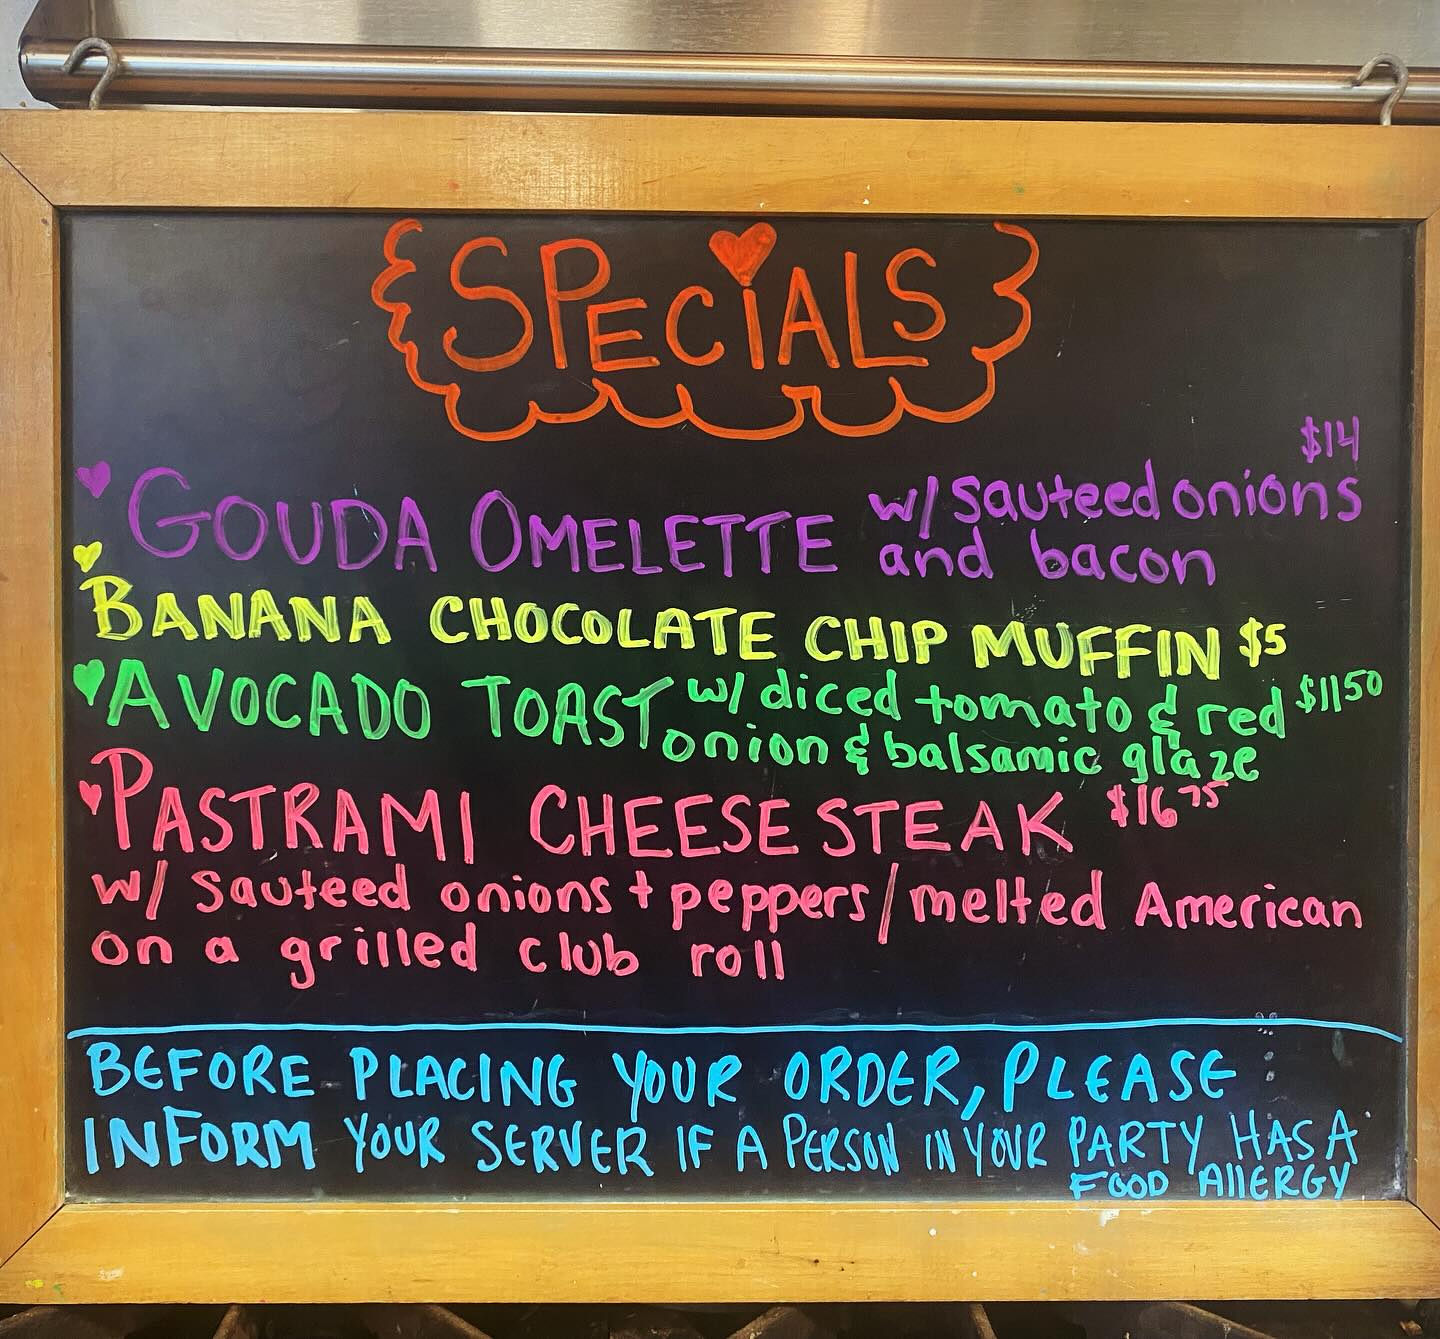 SPECiALS
$14
GOUDA OMELETTE w/ sauteed onions
and bacon
BANANA CHOCOLATE CHIP MUFFIN $5
AVOCADO TOAST w/ diced tomato & red $11 50
onion & balsamic glaze
PASTRAMI CHEESESTEAK $16 75
w/ sauteed onions + peppers/melted American
on a grilled club roll
BEFORE PLACING YOUR ORDER, PLEASE
INFORM YOUR SERVER IF A PERSON IN YOUR PARTY HAS A
FOOD AllERGY